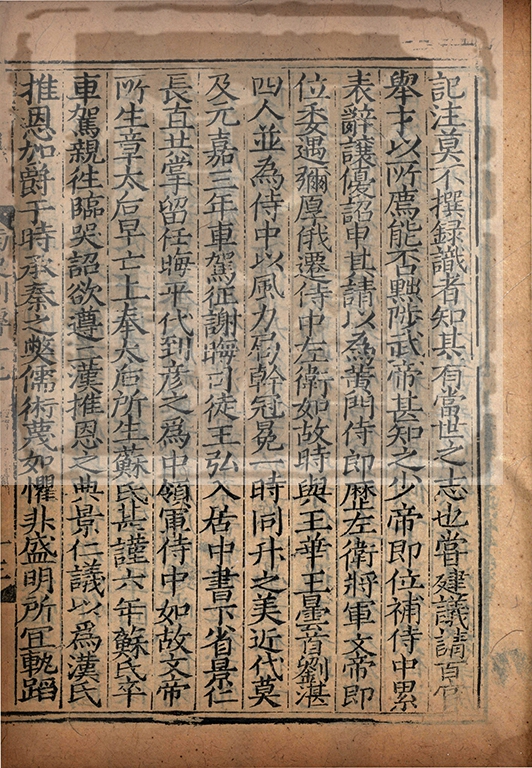 記注莫不撰録識者知其有當世之志也嘗建議請百官
舉才以所薦能否黜陟武帝甚知之少帝即位補侍中累
表辭讓優詔申其請以為黃門侍郎歷左衛將軍文帝即
位委遇彌厚俄遷侍中左衛如故時與王華王曇首劉湛
四人並為侍中以風力局幹冠冕一時同升之美近代莫
及元嘉三年車駕征謝晦司徒王弘入居中書下省景仁
長直共掌留任晦平代到彥之為中領軍侍中如故文帝
所生章太后早亡上奉太后所生蘇氏甚謹六年蘇氏卒
車駕親往臨哭詔欲遵二漢推恩之典景仁議以為漢氏
推恩加爵于時承秦之弊儒術蔑如懼非盛明所宜軌蹈